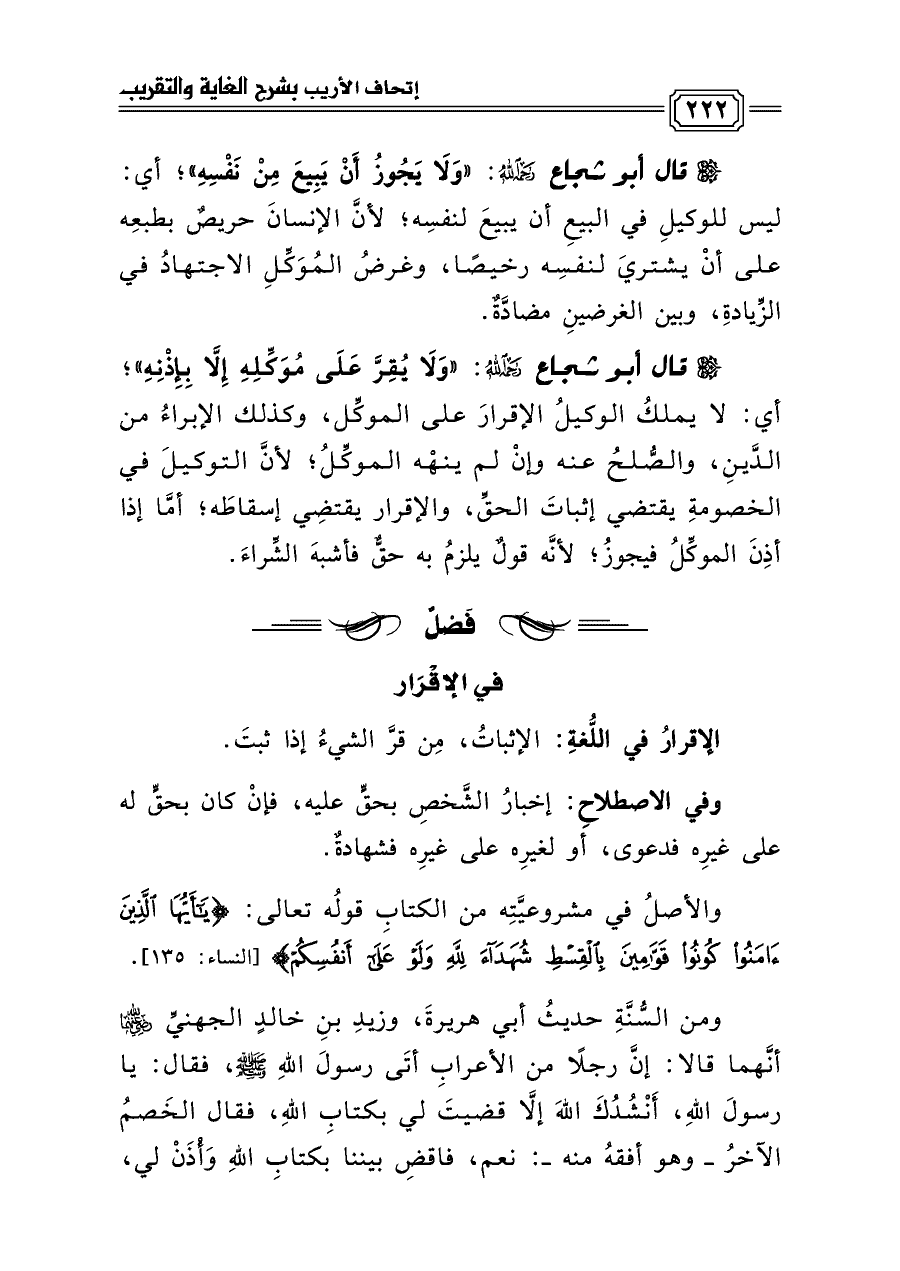 إتحاف الأريب بشرح الغاية والتقريب
٢٢٢
قال أبو شجاع رحمه الله: «وَلَا يَجُوزُ أَنْ يَبِيعَ مِنْ نَفْسِهِ»؛ أي:
ليس للوكيلِ في البيعِ أن يبيعَ لنفسِه؛ لأنَّ الإنسانَ حريصٌ بطبعِه
على أنْ يشتريَ لنفسِه رخيصًا، وغرضُ المُوَكِّلِ الاجتهادُ في
الزِّيادةِ، وبين الغرضينِ مضادَّةٌ.
قال أبو شجاع رحمه الله: «وَلَا يُقِرَّ عَلَى مُوَكِّلِهِ إِلَّا بِإِذْنِهِ»؛
أي: لا يملكُ الوكيلُ الإقرارَ على الموكِّل، وكذلك الإبراءُ من
الدَّينِ، والصُّلحُ عنه وإنْ لم ينهْه الموكِّلُ؛ لأنَّ التوكيلَ في
الخصومةِ يقتضي إثباتَ الحقِّ، والإقرار يقتضِي إسقاطَه؛ أمَّا إذا
أذِنَ الموكِّلُ فيجوزُ؛ لأنَّه قولٌ يلزمُ به حقٌّ فأشبهَ الشِّراءَ.
فَصْلٌ
في الإقْرَار
الإقرارُ في اللُّغةِ: الإثباتُ، مِن قرَّ الشيءُ إذا ثبتَ.
وفي الاصطلاحِ: إخبارُ الشَّخصِ بحقٍّ عليه، فإنْ كان بحقٍّ له
على غيرِه فدعوى، أو لغيرِه على غيرِه فشهادةٌ.
والأصلُ في مشروعيَّتِه من الكتابِ قولُه تعالى: ﴿يَٰٓأَيُّهَا ٱلَّذِينَ
ءَامَنُوا۟ كُونُوا۟ قَوَّٰمِينَ بِٱلْقِسْطِ شُهَدَآءَ لِلَّهِ وَلَوْ عَلَىٰٓ أَنفُسِكُمْ﴾ [النساء: ١٣٥].
ومن السُّنَّةِ حديثُ أبي هريرةَ، وزيدِ بنِ خالدٍ الجهنيِّ رضي الله عنهما
أنَّهما قالا: إنَّ رجلًا من الأعرابِ أتَى رسولَ اللهِ ﷺ، فقال: يا
رسولَ اللهِ، أَنْشُدُكَ اللهَ إلَّا قضيتَ لي بكتابِ اللهِ، فقال الخَصمُ
الآخرُ ـ وهو أفقهُ منه ـ: نعم، فاقضِ بيننا بكتابِ اللهِ وَأْذَنْ لي،